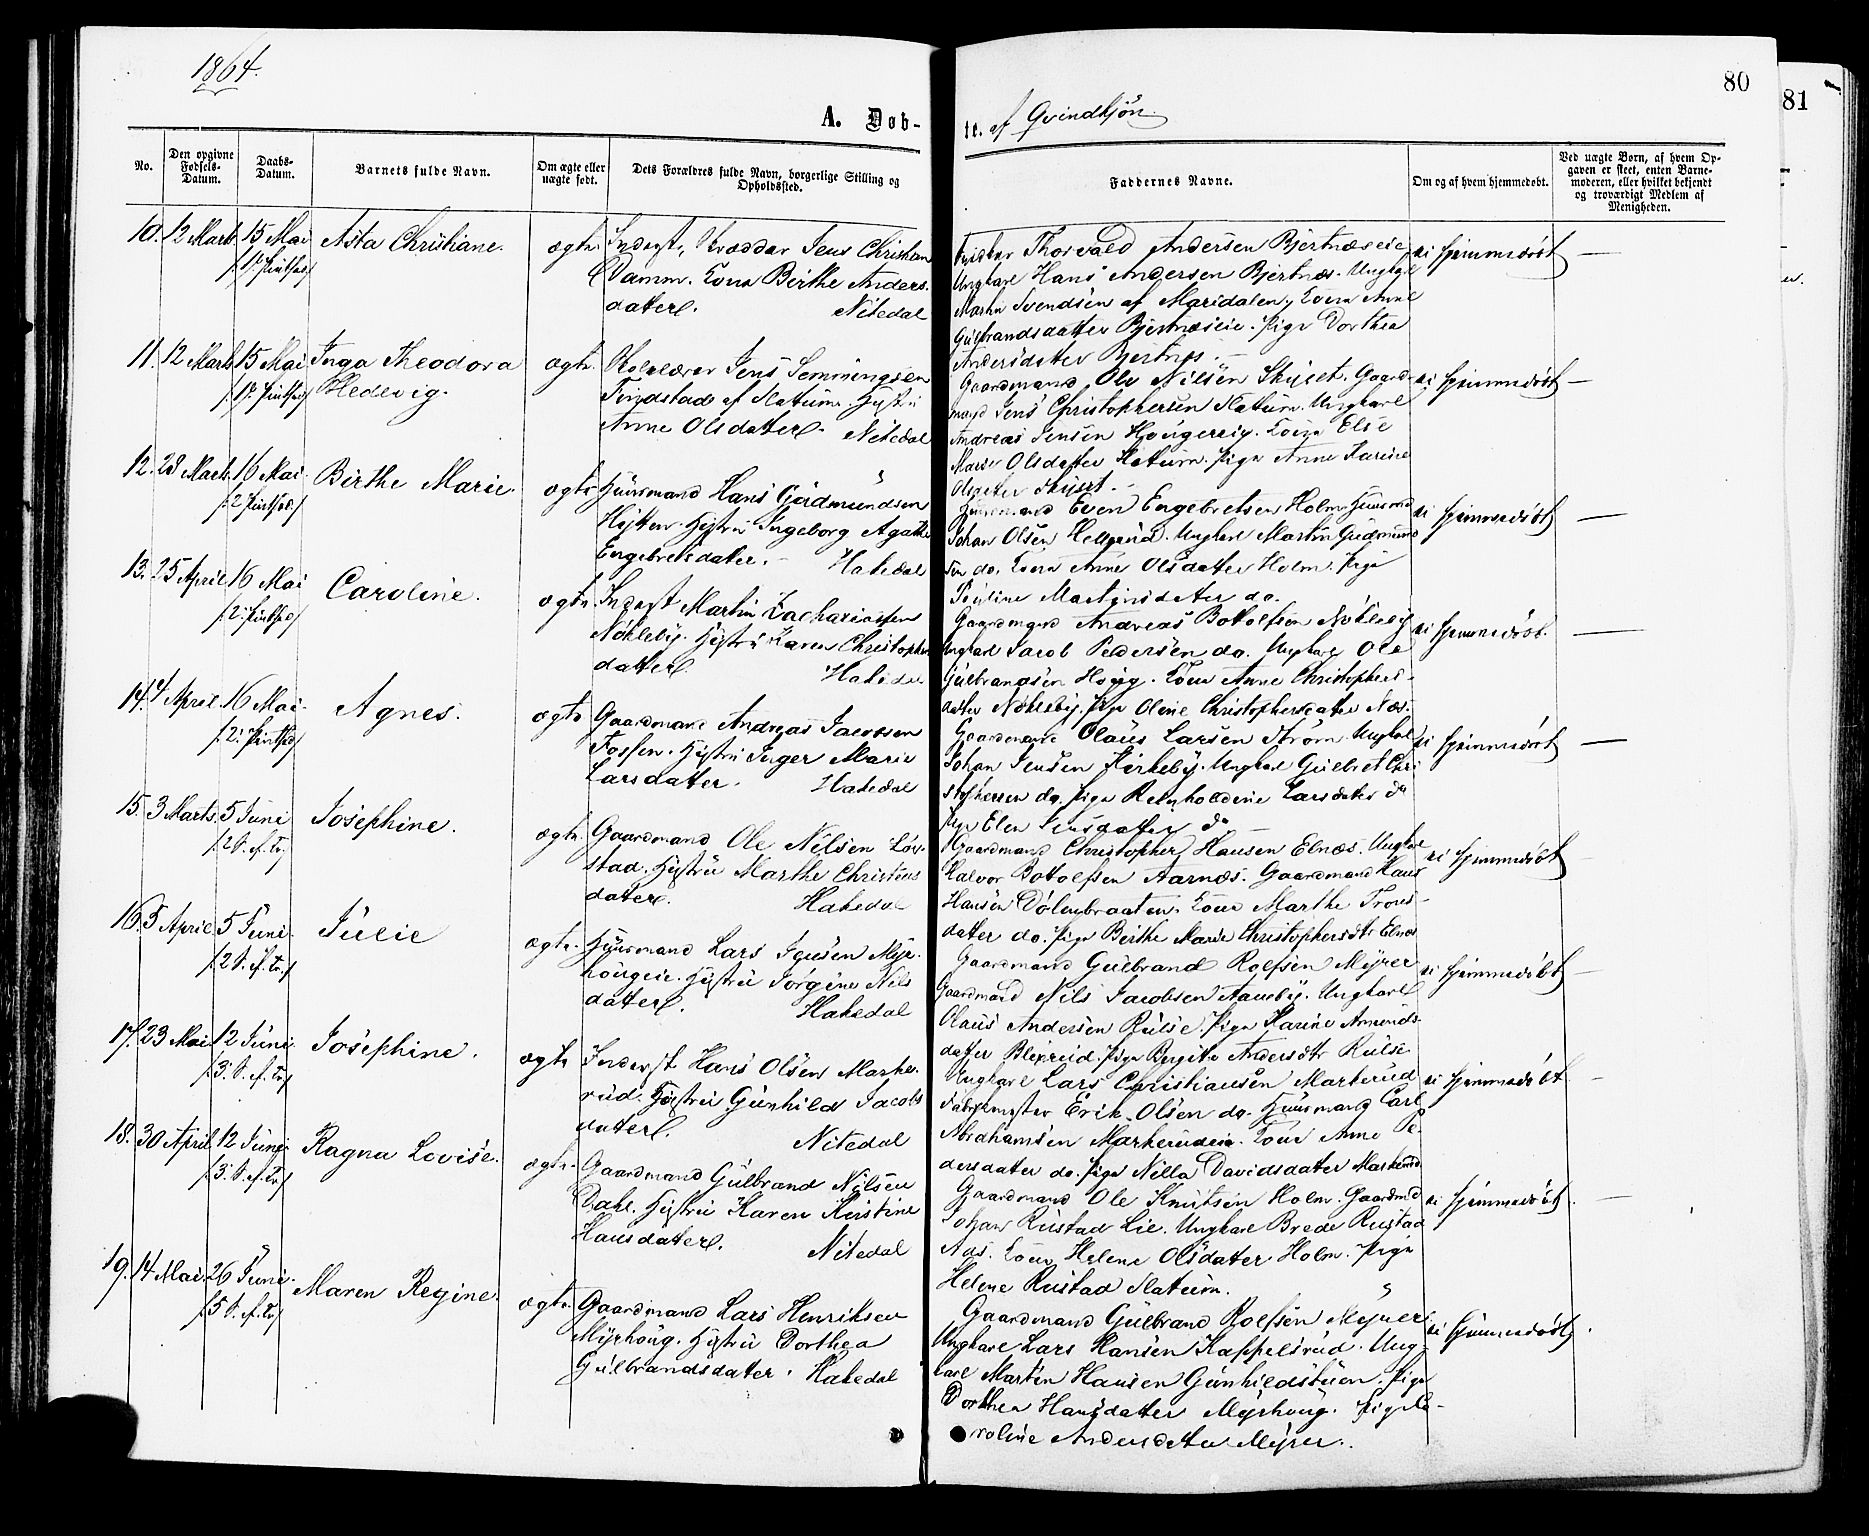 1864.
80
81
A. Døb-
te. af Qvindkjøn
No.
Den opgivne Fødsels-Datum.
Daabs-Datum.
Barnets fulde Navn.
Om ægte eller uægte født.
Dets Forældres fulde Navn, borgerlige Stilling og Opholdssted.
Faddernes Navne.
Om og af hvem hjemmedøbt.
Ved uægte Børn, af hvem Op-
gaven er skeet, enten Barne-
moderen, eller hvilket bekjendt
og troværdigt Medlem af
Menigheden.
10. 12 Marts 15 Mai Asta Christiane. ægte. Inderst, Skrædder Jens Christian
Damm. Kone Birthe Anders-
datter. Nitedal
Thorvald Andersen Bjertnæseie
Ungkarl Hans Andersen Bjertnæs. Ungkarl
Martin Svendsen af Maridalen. Kone Anne
Gulbrandsdatter Bjertnæseie. Pige Dorthea
Andersdatter Bjertnæs.
ei hjemmedøbt —
11. 12 Marts 15 Mai Inga Theodora ægte.
Hedevig.
Jens Semmingsen
af Slatum. Hustru
Anne Olsdatter. Nitedal
Gaardmand Ole Nilsen Skyset. Gaard-
mand Jens Christophersen Slatum. Ungkarl
Andreas Jensen. Kone Else
Marie Olsdatter Slatum. Pige Anne Karine
Olsdatter Skyset.
ei hjemmedøbt —
12. 28 Marts 16 Mai Birthe Marie. ægte
Huusmand Hans Gudmundsen
Hustru Ingeborg Agathe
Engebretsdatter. Hakedal
Huusmand Even Engebretsen Holm. Huusmand
Johan Olsen. Ungkarl Martin Gudmund-
sen do. Kone Anne Olsdatter Holm. Pige
Pauline Martinsdatter do.
ei hjemmedøbt —
13. 25 April 16 Mai Caroline. ægte.
Inderst Martin Zachariassen
Nökleby. Hustru Karen Christophers-
datter. Hakedal
Gaardmand Andreas Botolfsen Nökleby
Ungkarl Jacob Pedersen do. Ungkarl Ole
Gulbrandsen Houg. Kone Anne Christophers-
datter Nökleby. Pige Oline Christophersdatter Næs.
ei hjemmedøbt. —
14. 4 April 16 Mai Agnes. ægte
Gaardmand Andreas Jacobsen
Fossen. Hustru Inger Marie
Larsdatter. Hakedal
Gaardmand Olaus Larsen Strøm. Ungkarl
Johan Jensen Kirkeby. Ungkarl Gulbret Chri-
stophersen do. Pige Reinholdine Larsdatter do
Pige Elen Jensdatter do
ei hjemmedøbt —
15. 3 Marts. 5 Juni Josephine. ægte.
Gaardmand Ole Nilsen Løv-
stad. Hustru Marthe Christens-
datter. Hakedal
Gaardmand Christopher Hansen Elnæs. Ungkarl
Halvor Botolfsen Aarnæs. Gaardmand Hans
Hansen Dølenbraaten. Kone Marthe Trons-
datter do. Pige Birthe Marie Christophersdtr Elnæs
ei hjemmedøbt
16. 5 April. 5 Juni. Julie ægte.
Huusmand Lars Jensen Myr-
hougeie. Hustru Jørgine Nils-
datter. Hakedal
Gaardmand Gulbrand Rolfsen Myrer
Gaardmand Nils Jacobsen Aaneby. Ungkarl
Olaus Andersen Rulse. Pige Karine Amunds-
datter. Pige Bergitte Andersdtr Rulse
ei hjemmedøbt —
17. 23 Mai 12 Juni. Josephine. ægte
Inderst Hans Olsen Marke-
rud. Hustru Gunhild Jacobs-
datter. Nitedal
Ungkarl Lars Christiansen Markerud
Erik Olsen do. Huusmand Carl
Abrahamsen Markerudeie. Kone Anne Pe-
dersdatter do. Pige Nilla Davidsdatter Markerud
ei hjemmedøbt —
18. 30 April 12 Juni Ragna Lovise. ægte.
Gaardmand Gulbrand Nilsen
Dahl. Hustru Karen Kirstine
Hansdatter. Nitedal
Gaardmand Ole Knutsen Holm. Gaardmd
Johan Rustad Lie. Ungkarl Brede Rustad
Aas. Kone Helene Olsdatter Holm. Pige
Helene Rustad Slatum.
ei hjemmedøbt. —
19. 14 Mai. 26 Juni. Maren Regine. ægte.
Gaardmand Lars Henriksen
Myrhoug. Hustru Dorthea
Gulbrandsdatter. Hakedal
Gaardmand Gulbrand Rolfsen Myrer.
Ungkarl Lars Hansen Kappelsrud. Ung-
karl Martin Hansen Gunhildstuen. Pige
Dorthea Hansdatter Myrhoug. Pige Ca-
roline Andersdatter Myrer.
ei hjemmedøbt.